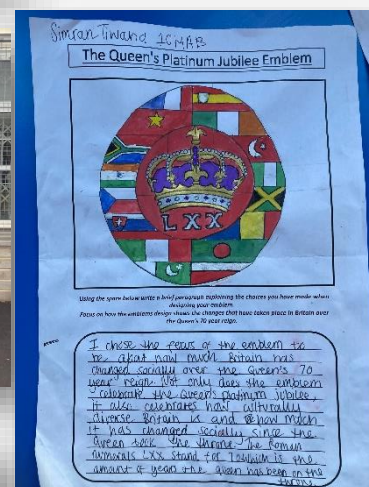 Simran Tiwana 10MAB
The Queen's Platinum Jubilee Emblem
LXX
Using the space below write a brief paragraph explaining the choices you have made when
designing your emblem.
Focus on how the emblems design shows the changes that have taken place in Britain over
the Queen's 70 year reign.
I chose the focus of the emblem to
be about how much Britain has
changed socially over the Queen's 70
year reign. Not only does the emblem
celebrate the Queen's platinum jubilee,
it also celebrates how culturally
diverse Britain is and how much
it has changed socially since the
Queen took the throne. The Roman
numerals LXX stand for 70 which is the
amount of years the queen has been on the
throne